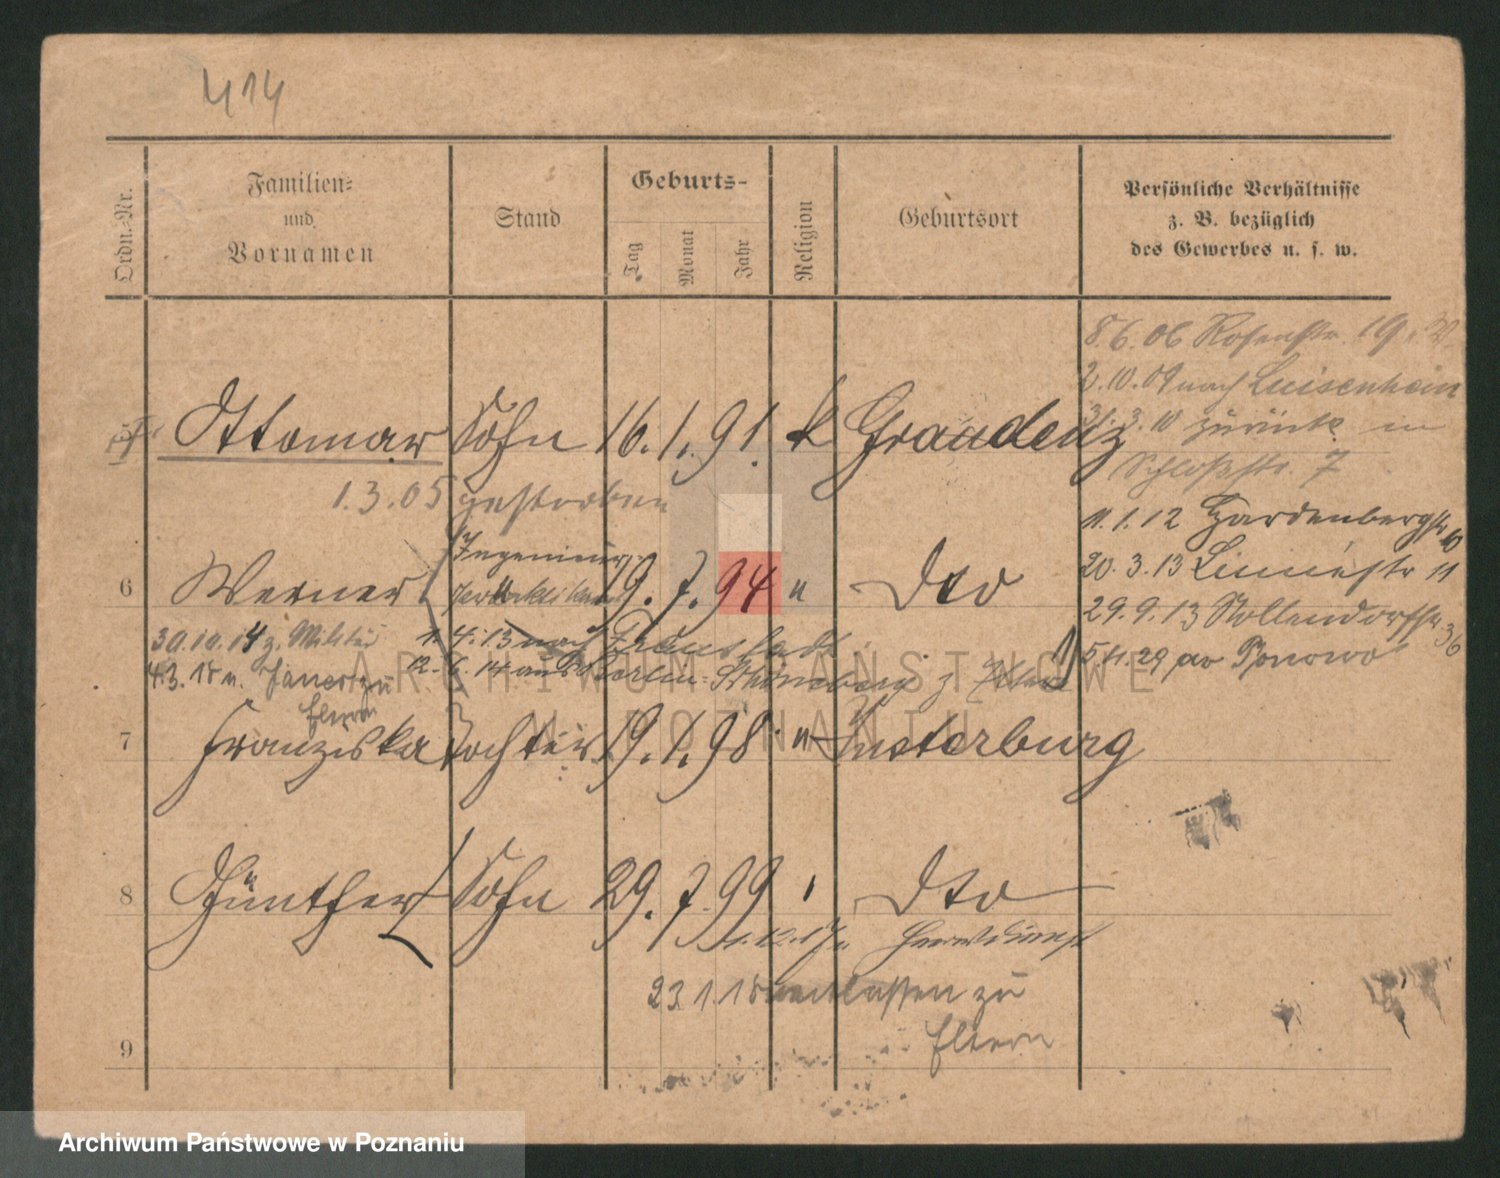 414
Ordn.-Nr.
Familien-
und
Vornamen
Stand
Geburts-
Tag
Monat
Jahr
Religion
Geburtsort
Persönliche Verhältnisse
z. B. bezüglich
des Gewerbes u. s. w.
8.6.06 Rosenstr. 19
2.10.09 nach Luisenhain
31.3.10 zurück in
Schloßstr. 7
Ottomar Sohn 16.1.91. k Graudenz
1.3.05 gestorben
11.1.12 Hardenbergstr 10
20.3.13 Linnéstr 11
29.9.13 Nollendorfstr. 36
5.11.29
Ingenieur
6 Werner 19.7.94 " dto
30.10.14 z. Militär 1.4.13 nach Fraustadt
4.3.18 v. Jauer zu 12.6.14 aus Berlin-Schöneberg z.
Eltern
7 Franziska Tochter 19.1.98. " Insterburg
8 Günther Sohn 29.7.99 dto
1.12.17
23.1.18 entlassen zu
Eltern
9
ARCHIWUM PAŃSTWOWE
W POZNANIU
Archiwum Państwowe w Poznaniu